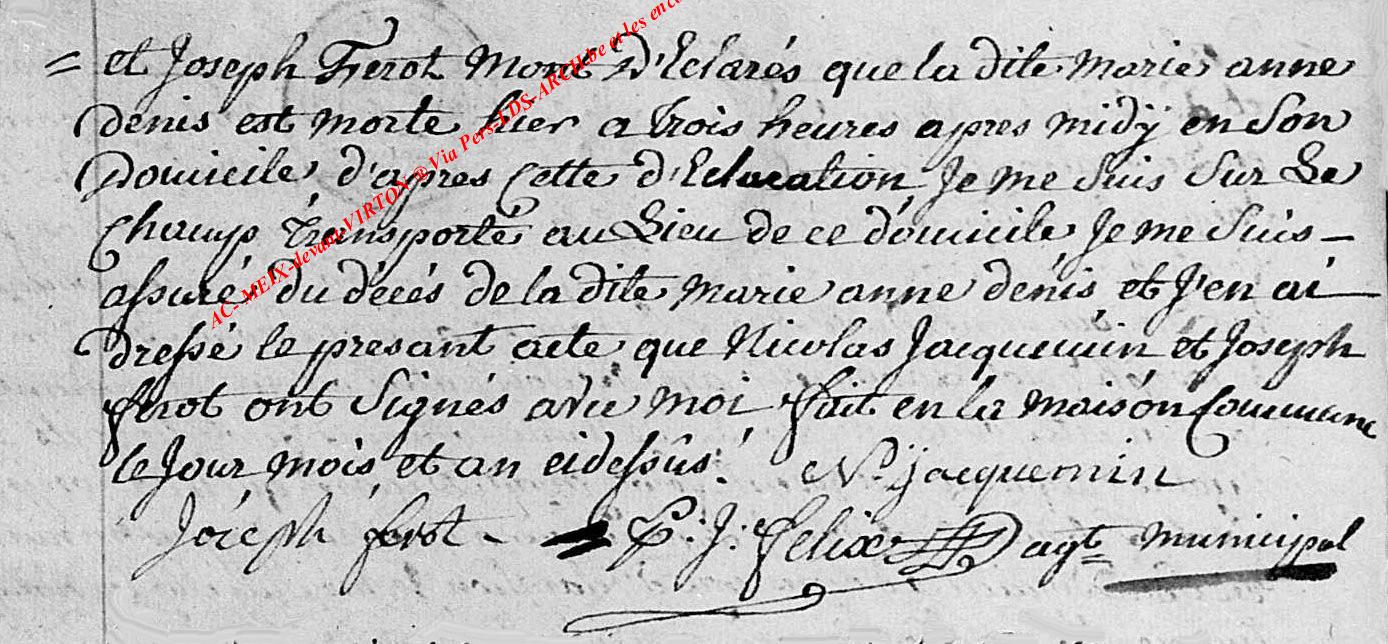 = et Joseph Ferot Mont d'Eclarés que la dite marie anne
denis est morte hier a trois heures apres midÿ en Son
Domicile d'apres Cette d'Eclaration Je me Suis Sur Le
Champ transporté au Lieu de ce domicile Je me Suis -
assuré du décés de la dite marie anne dénis et J'en ai
dressé le présant acte que Nicolas Jacquemin et Joseph
ferot ont Signés avec moi fait en la maison Commune
le Jour mois et an cidessus. Ns. jacquemin
Joseph ferot - = J. Felix agt municipal
AC-MEIX-devant-VIRTON @ Via Pers-LDS-ARCH.be et les enco